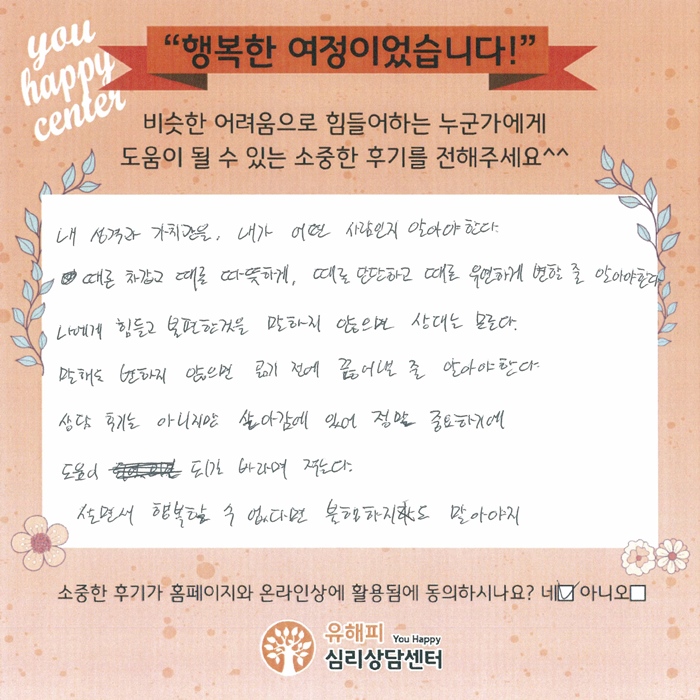 you
happy
center
“행복한 여정이었습니다!”
비슷한 어려움으로 힘들어하는 누군가에게
도움이 될 수 있는 소중한 후기를 전해주세요^^
내 성격과 가치관을, 내가 어떤 사람인지 알아야한다.
때론 차갑고 때론 따뜻하게, 때로 단단하고 때로 유연하게 변할 줄 알아야한다
나에게 힘들고 불편한것을 말하지 않으면 상대는 모른다.
말해도 변하지 않으면 곪기 전에 끊어낼 줄 알아야한다.
상담 후기는 아니지만 살아감에 있어 정말 중요하기에
도움이 되기로 바라며 적는다.
살면서 행복할 수 없다면 불행하지도 말아야지
소중한 후기가 홈페이지와 온라인상에 활용됨에 동의하시나요? 네 아니오
유해피 You Happy
심리상담센터